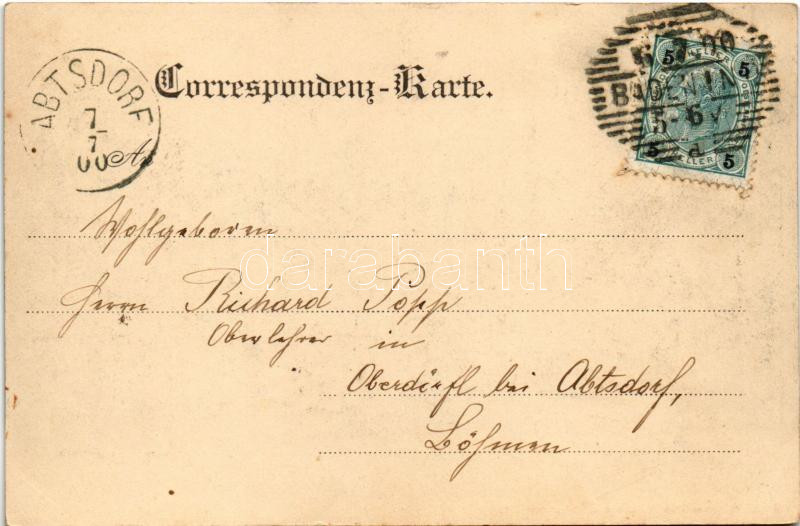 Correspondenz-Karte.
ABTSDORF
7
7
00
An
5 5
HELLER
5 5
BADEN
6
Wohlgeborn
Herrn Richard Popp
Oberlehrer in
Oberdörfl bei Abtsdorf,
Böhmen
darabanth